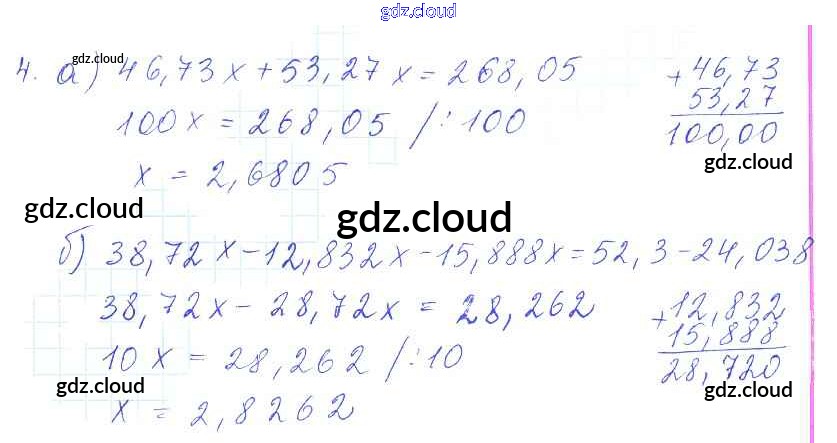 gdz.cloud
gdz.cloud
4. а) 46,73x + 53,27x = 268,05
100x = 268,05 /:100
x = 2,6805
+ 46,73
53,27
100,00
gdz.cloud
gdz.cloud
gdz.cloud
б) 38,72x - 12,832x - 15,888x = 52,3 - 24,038
38,72x - 28,72x = 28,262
10x = 28,262 /:10
x = 2,8262
+ 12,832
15,888
28,720
gdz.cloud
gdz.cloud